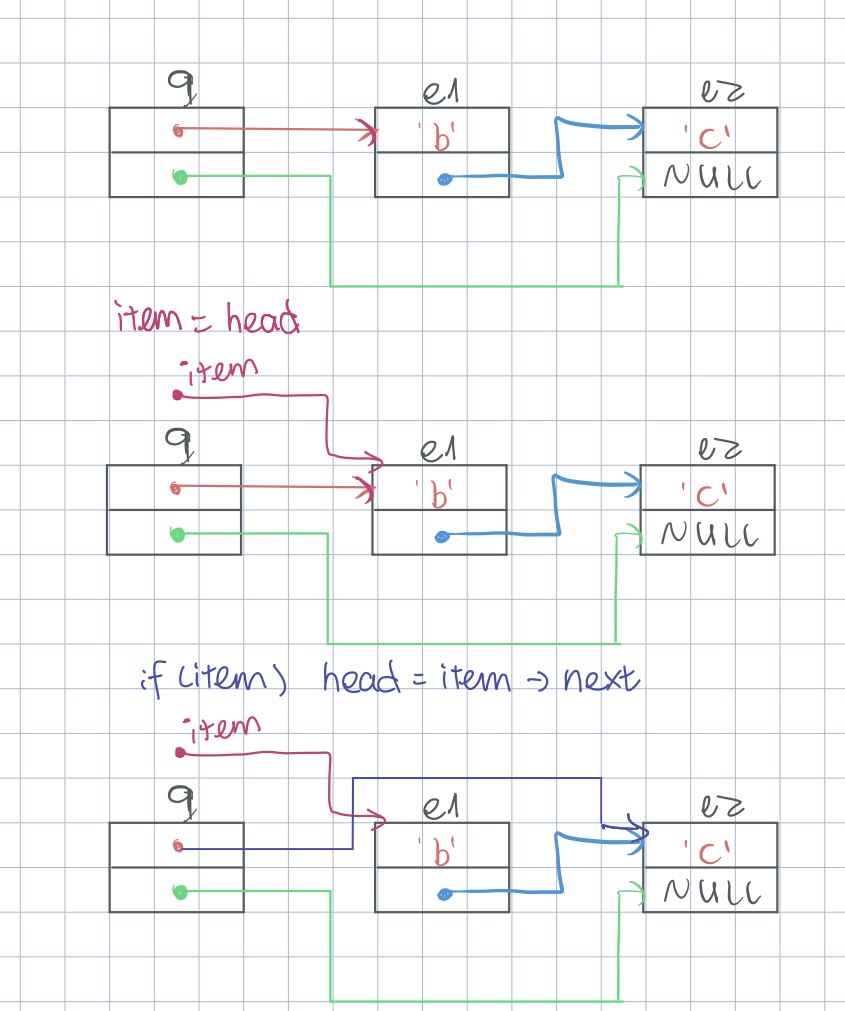 q e1 e2
'b' 'c'
NULL
item = head
item
q e1 e2
'b' 'c'
NULL
if (item) head = item → next
item
q e1 e2
'b' 'c'
NULL